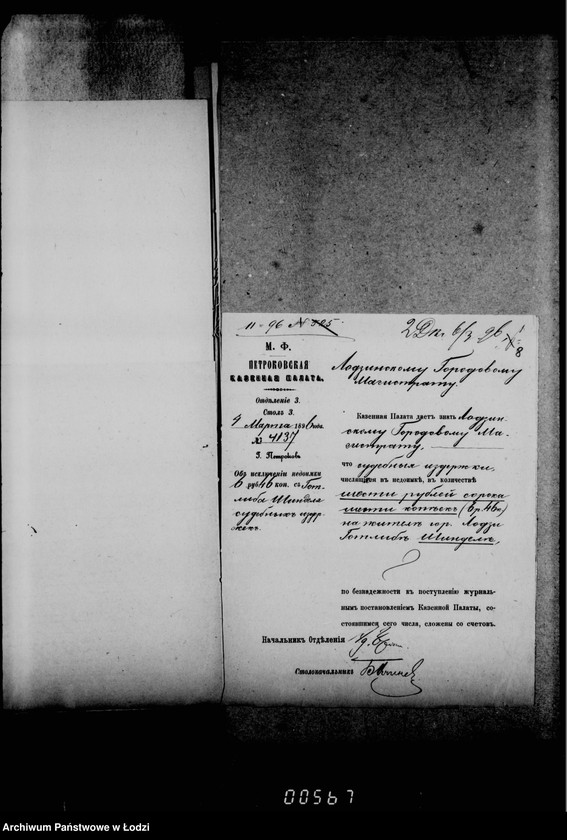 11-96 № 325
2 Дк. 6/3 96
8
М. Ф.
ПЕТРОКОВСКАЯ
КАЗЕННАЯ ПАЛАТА.
Отдѣленіе 3.
Столъ 3.
4 Марта 1896 года.
№ 4137
г. Петроковъ
Объ исключеніи недоимки
6 руб. 46 коп. съ Гот-
либа Шинделя
судебныхъ издер-
жекъ.
Лодзинскому Городовому
Магистрату.
Казенная Палата даетъ знать Лодзин-
скому Городовому Ма-
гистрату,
что судебныя издержки,
числящіяся въ недоимкѣ, въ количествѣ
шести рублей сорока
шести копѣекъ (6 р. 46 к.)
на жителѣ гор. Лодзи
Готлибѣ Шинделѣ,
по безнадежности къ поступленію журналь-
нымъ постановленіемъ Казенной Палаты, со-
стоявшимся сего числа, сложены со счетовъ.
Начальникъ Отдѣленія
Столоначальникъ
00567
Archiwum Państwowe w Łodzi